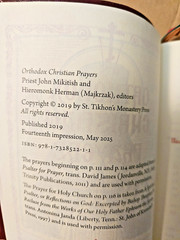 Orthodox Christian Prayers
Priest John Mikitish and
Hieromonk Herman (Majkrzak), editors
Copyright © 2019 by St. Tikhon's Monastery Press
All rights reserved.
Published 2019
Fourteenth impression, May 2025
ISBN: 978-1-7328522-1-1
The prayers beginning on p. 111 and p. 114 are adapted from
Psalter for Prayer, trans. David James (Jordanville, NY: Holy
Trinity Publications, 2011) and are used with permission.
The Prayer for Holy Church on p. 126 is taken from
Reflections on God: Excerpted by Bishop
from the Works of Our Holy Father Ephraim the Syrian
trans. Antonina Janda (Liberty, Tenn.: St. John of Kronstadt
Press, 1997) and is used with permission.